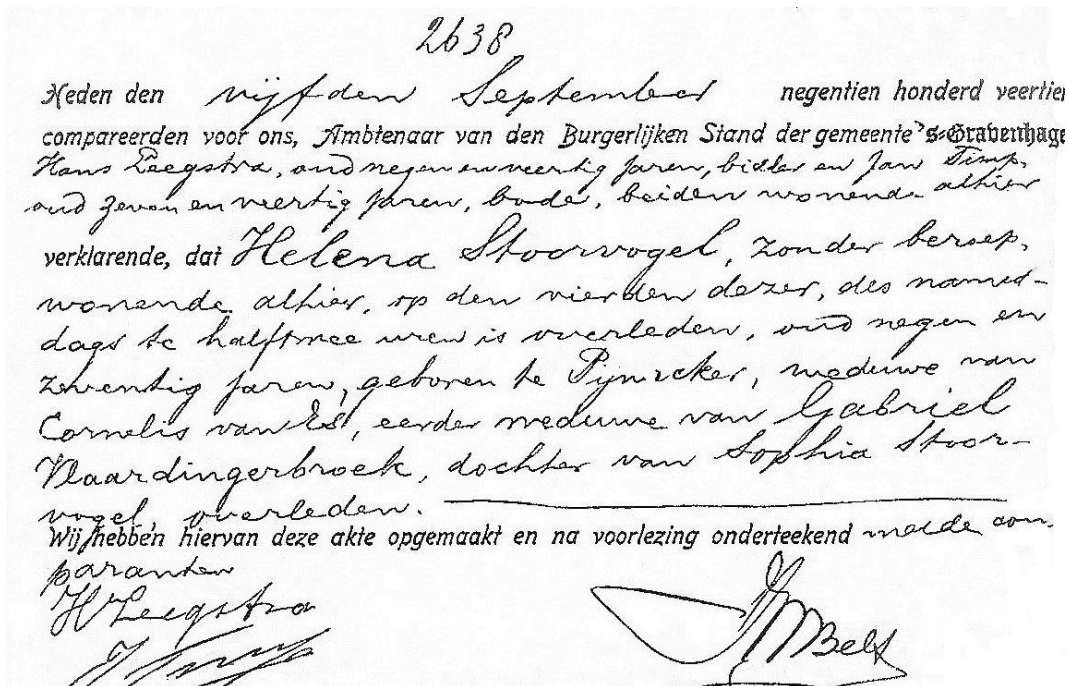 2638
Heden den vijfden September negentien honderd veertien
compareerden voor ons, Ambtenaar van den Burgerlijken Stand der gemeente 's-Gravenhage
Hans Leegstra, oud negen en veertig jaren, bidder en Jan Timp,
oud zeven en veertig jaren, bode, beiden wonende alhier
verklarende, dat Helena Stoorvogel, zonder beroep,
wonende alhier, op den vierden dezer, des namid-
dags te half twee uren is overleden, oud negen en
zeventig jaren, geboren te Pijnacker, weduwe van
Cornelis van Es, eerder weduwe van Gabriel
Vlaardingerbroek, dochter van Sophia Stoor-
vogel, overleden.
Wij hebben hiervan deze akte opgemaakt en na voorlezing onderteekend met de com-
paranten
H Leegstra